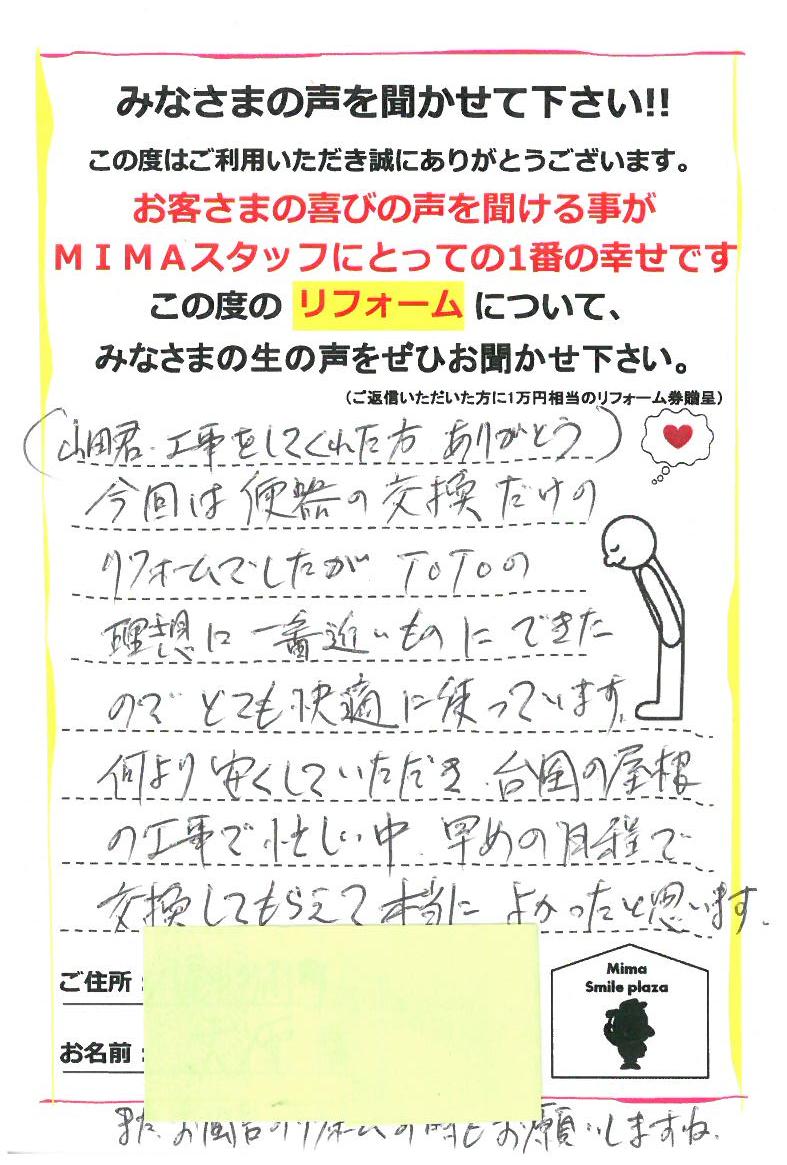 みなさまの声を聞かせて下さい!!
この度はご利用いただき誠にありがとうございます。
お客さまの喜びの声を聞ける事が
MIMAスタッフにとっての1番の幸せです
この度の リフォーム について、
みなさまの生の声をぜひお聞かせ下さい。
(ご返信いただいた方に1万円相当のリフォーム券贈呈)
(山田君.工事をしてくれた方 ありがとう)
今回は便器の交換だけの
リフォームでしたが TOTOの
理想に一番近いものにできた
のでとても快適に使っています。
何より安くしていただき 台風の屋根
の工事で忙しい中 早めの日程で
交換してもらえて本当に よかったと思います.
ご住所:
お名前:
Mima
Smile plaza
また お風呂のリフォームの時もお願いしますね.